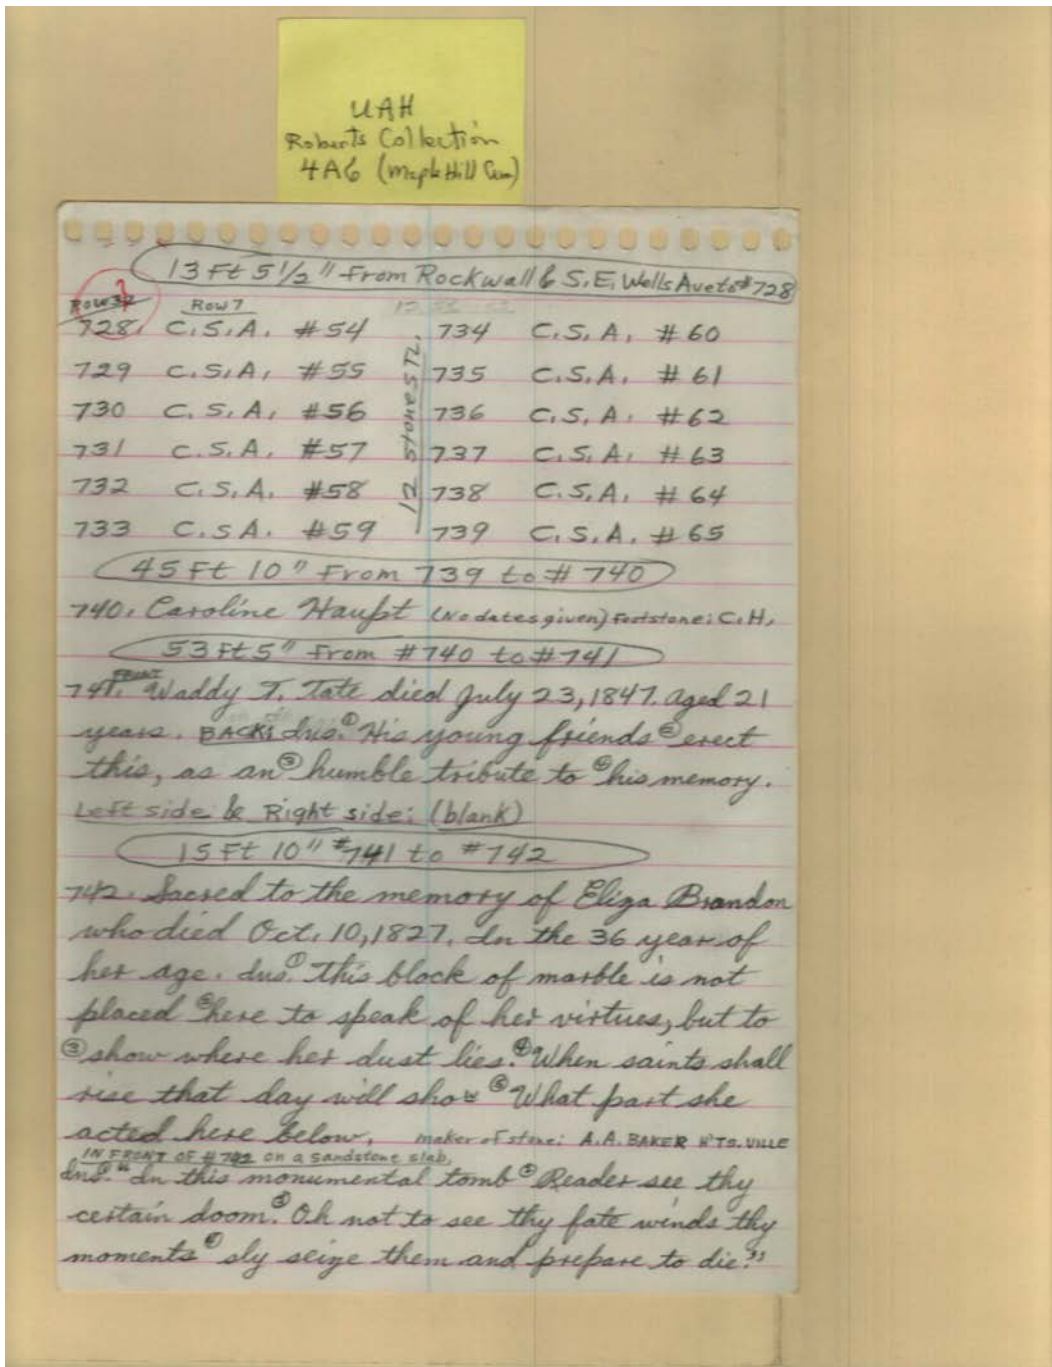 UAH
Roberts Collection
4A6 (Maple Hill Cem)
13 Ft 5 1/2" From Rockwall & S.E. Wells Ave to #728
Row 32 Row 7
728. C.S.A. #54 734 C.S.A. #60
729 C.S.A. #55 735 C.S.A. #61
730 C.S.A. #56 736 C.S.A. #62
731 C.S.A. #57 737 C.S.A. #63
732 C.S.A. #58 738 C.S.A. #64
733 C.S.A. #59 739 C.S.A. #65
12 stones TL.
45 Ft 10" From 739 to # 740
740. Caroline Haupt (No dates given) Footstone: C.H.
53 Ft 5" From #740 to #741
FRONT
741. Waddy T. Tate died July 23, 1847. Aged 21
years. BACK: Ins. ① His young friends ② erect
this, as an ③ humble tribute to ④ his memory.
Left side & Right side: (blank)
15 Ft 10" #741 to #742
742. Sacred to the memory of Eliza Brandon
who died Oct. 10, 1827. In the 36 year of
her age. Ins. ① This block of marble is not
placed ② here to speak of her virtues, but to
③ show where her dust lies. ④ "When saints shall
rise that day will show ⑤ What part she
acted here below. maker of stone: A.A. BAKER H'TS.VILLE
IN FRONT OF #742 on a sandstone slab,
Ins. "In this monumental tomb ② Reader see thy
certain doom. ③ Oh not to see thy fate winds thy
moments sly seize them and prepare to die."